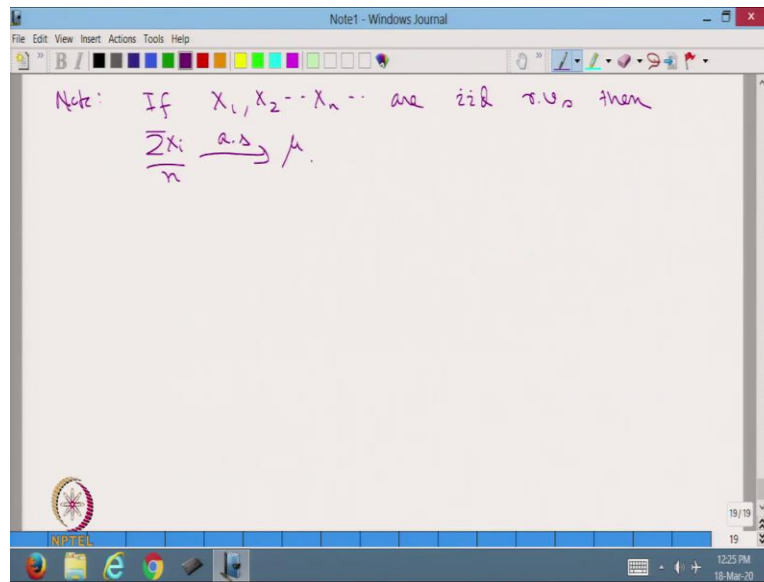 Note1 - Windows Journal
File Edit View Insert Actions Tools Help
B I
Note: If X₁, X₂ -- Xₙ -- are iid r.v.s then
ΣXi/n a.s→ μ.
NPTEL
19/19
19
12:25 PM
18-Mar-20